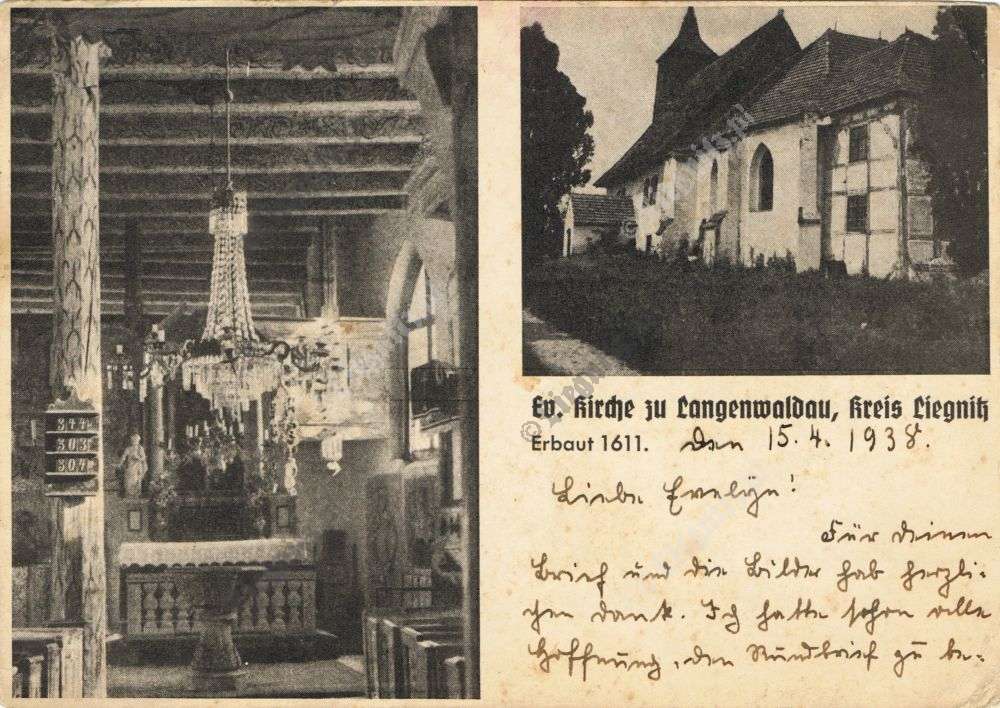 344
303
307
Ev. Kirche zu Langenwaldau, Kreis Liegnitz
Erbaut 1611. den 15.4.1938.
Liebe Evelyn!
Für deinen
Brief und die Bilder hab herzli-
chen Dank. Ich hatte schon alle
Hoffnung, den Rundbrief zu be-